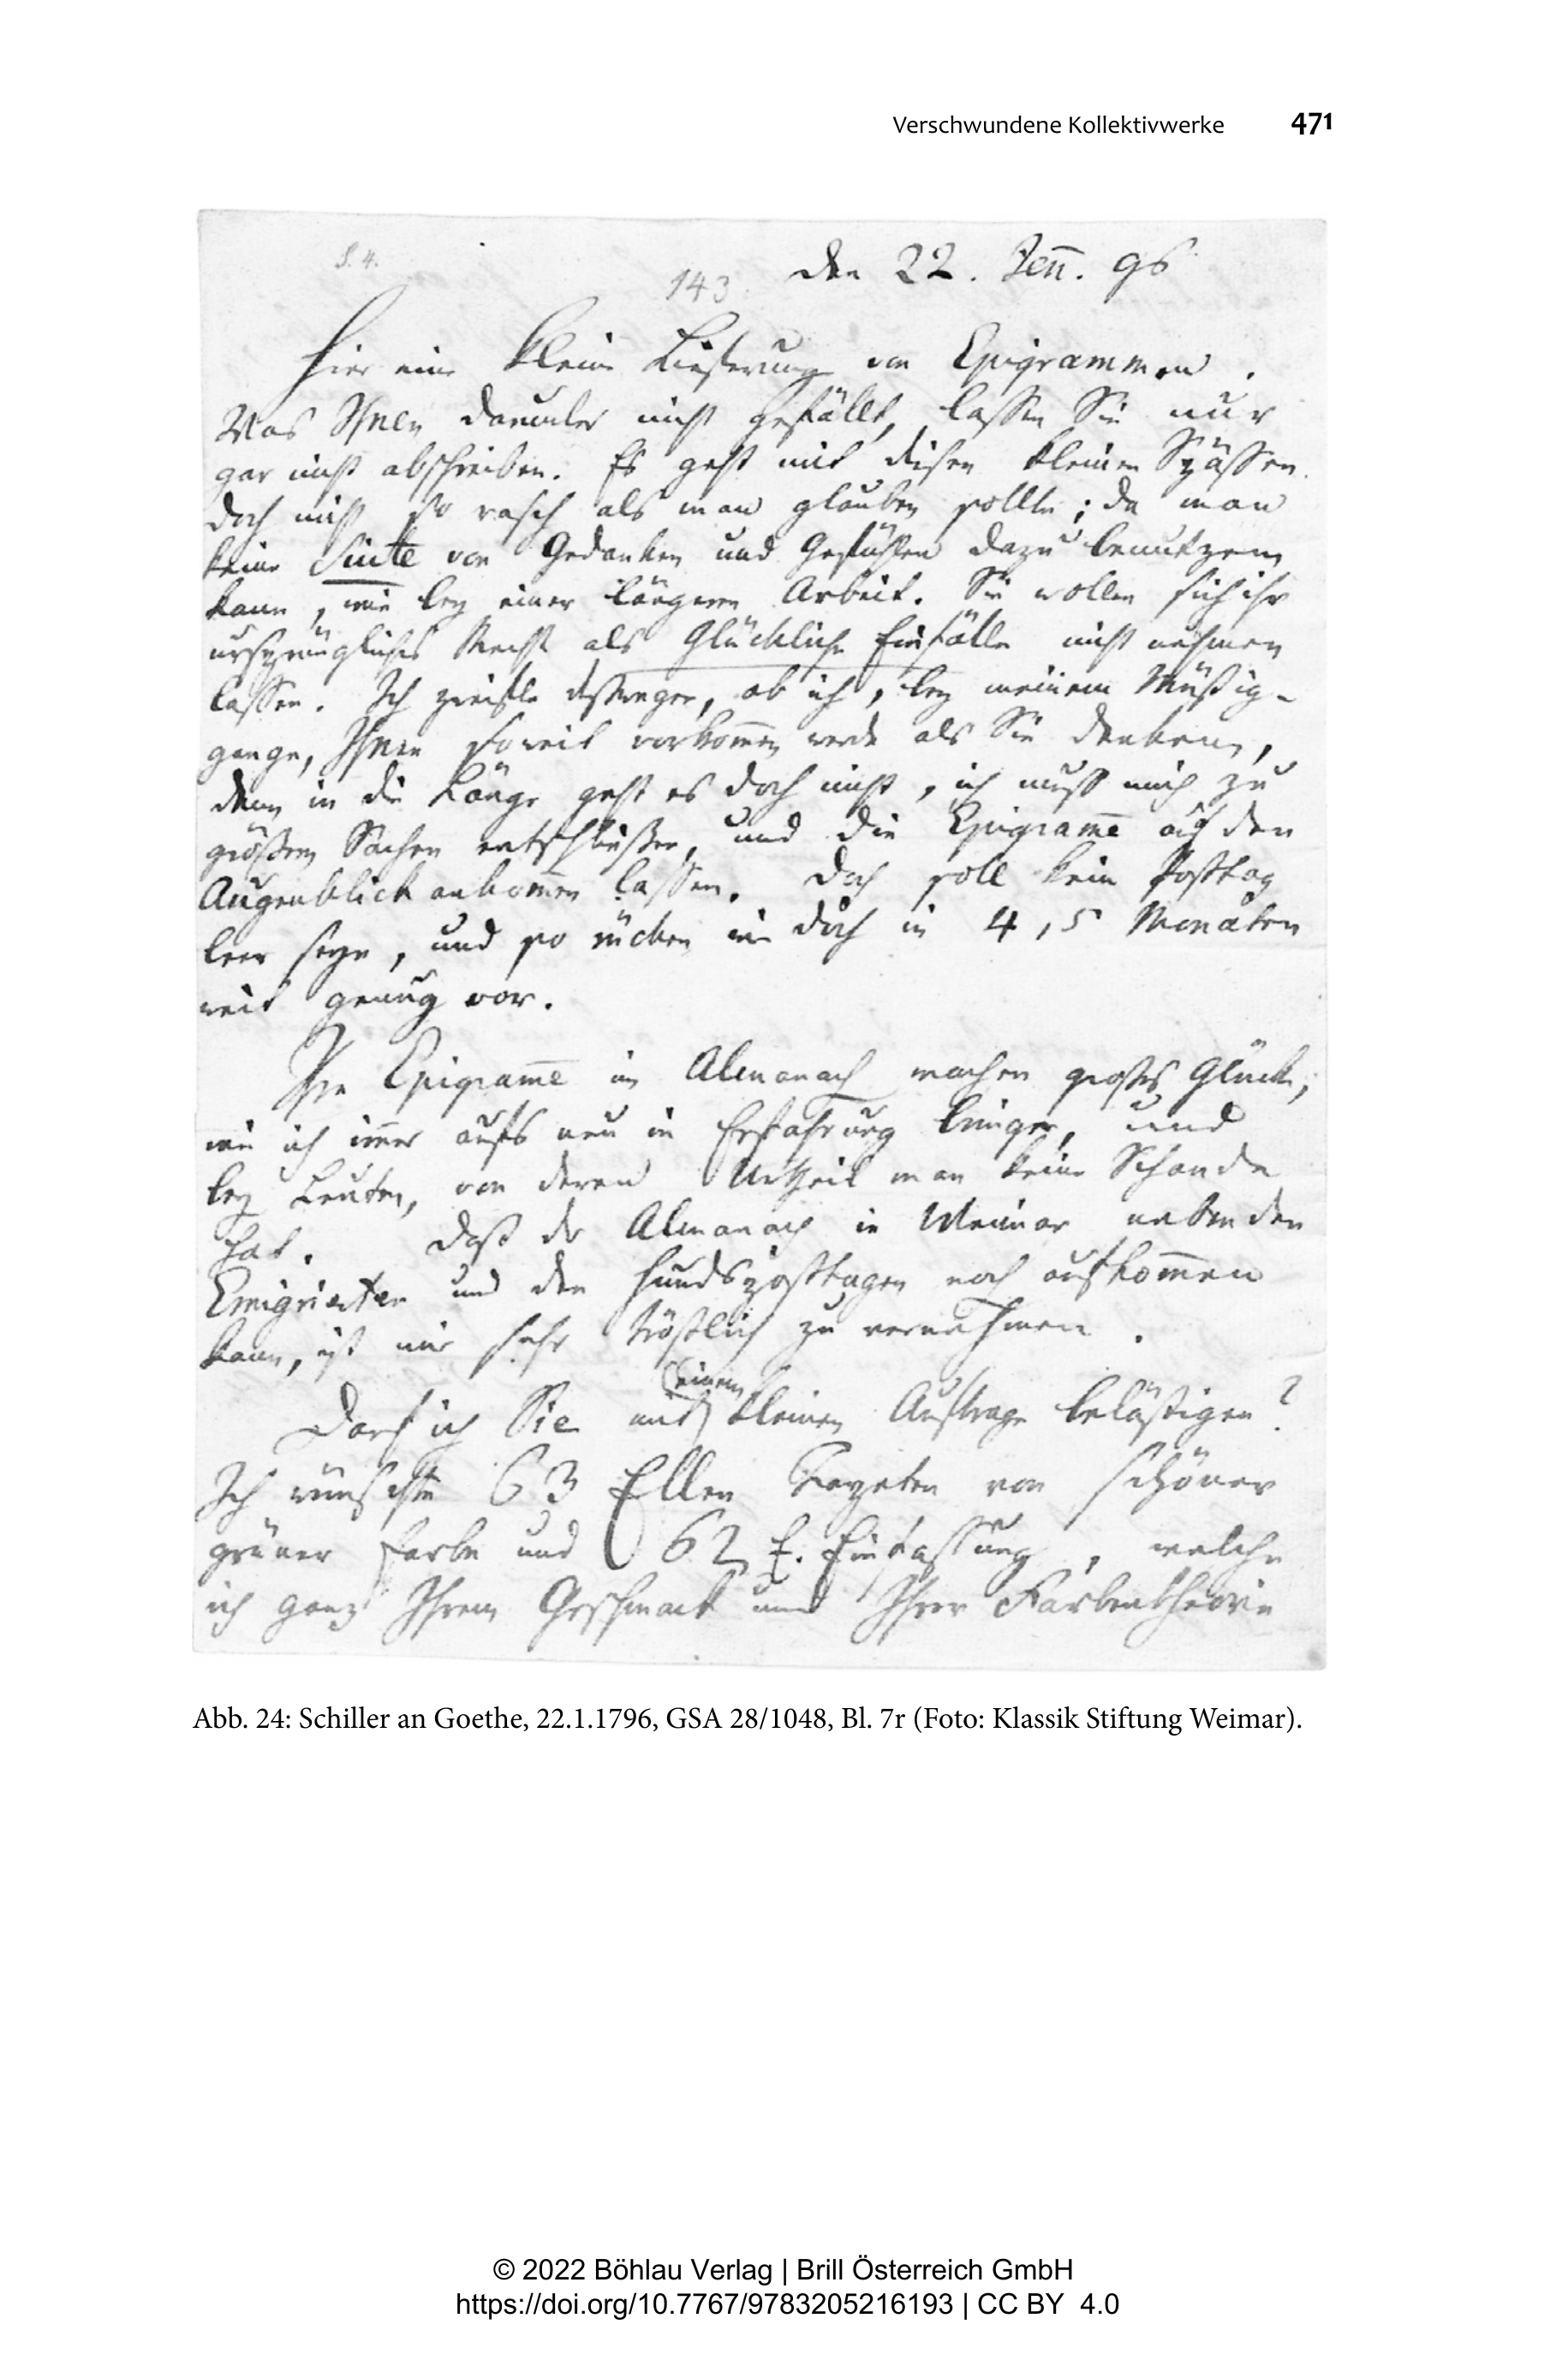 Verschwundene Kollektivwerke 471
S. 4.
143. den 22. Jen̅. 96
Hier eine kleine Lieferung von Epigrammen.
Was Ihnen darunter nicht gefällt, lassen Sie nur
gar nicht abschreiben. Es geht mit diesen kleinen Spässen
doch nicht so rasch als man glauben sollte; da man
keine Suite von Gedanken und Gefühlen dazu benutzen
kann, wie bey einer längern Arbeit. Sie wollen sich ihr
ursprüngliches Recht als Glückliche Einfälle nicht nehmen
lassen. Ich zweifle deßwegen, ob ich, bey meinem Müßig-
gange, Ihnen soweit vorkom̅en werde als Sie denken,
denn in die Länge geht es doch nicht, ich muß mich zu
größern Sachen entschließen, und die Epigram̅e auf den
Augenblick ankom̅en lassen. Doch soll kein Posttag
leer seyn, und so rücken wir doch in 4, 5 Monaten
weit genug vor.
Ihre Epigram̅e im Almanach machen großes Glück,
wie ich im̅er aufs neu in Erfahrung bringe, und
bey Leuten, von deren Urtheil man keine Schande
hat. Daß der Almanach in Weimar neben den
Emigrierten und den Hundsposttagen noch aufkom̅en
kann, ist mir sehr tröstlich zu vernehmen.
einem
Darf ich Sie mit kleinen Auftrage belästigen?
Ich wünschte 63 Ellen Tapeten von schöner
grüner Farbe und 62 E. Einfassung, welche
ich ganz Ihrem Geschmack und Ihrer Farbentheorie
Abb. 24: Schiller an Goethe, 22.1.1796, GSA 28/1048, Bl. 7r (Foto: Klassik Stiftung Weimar).
© 2022 Böhlau Verlag | Brill Österreich GmbH
https://doi.org/10.7767/9783205216193 | CC BY 4.0